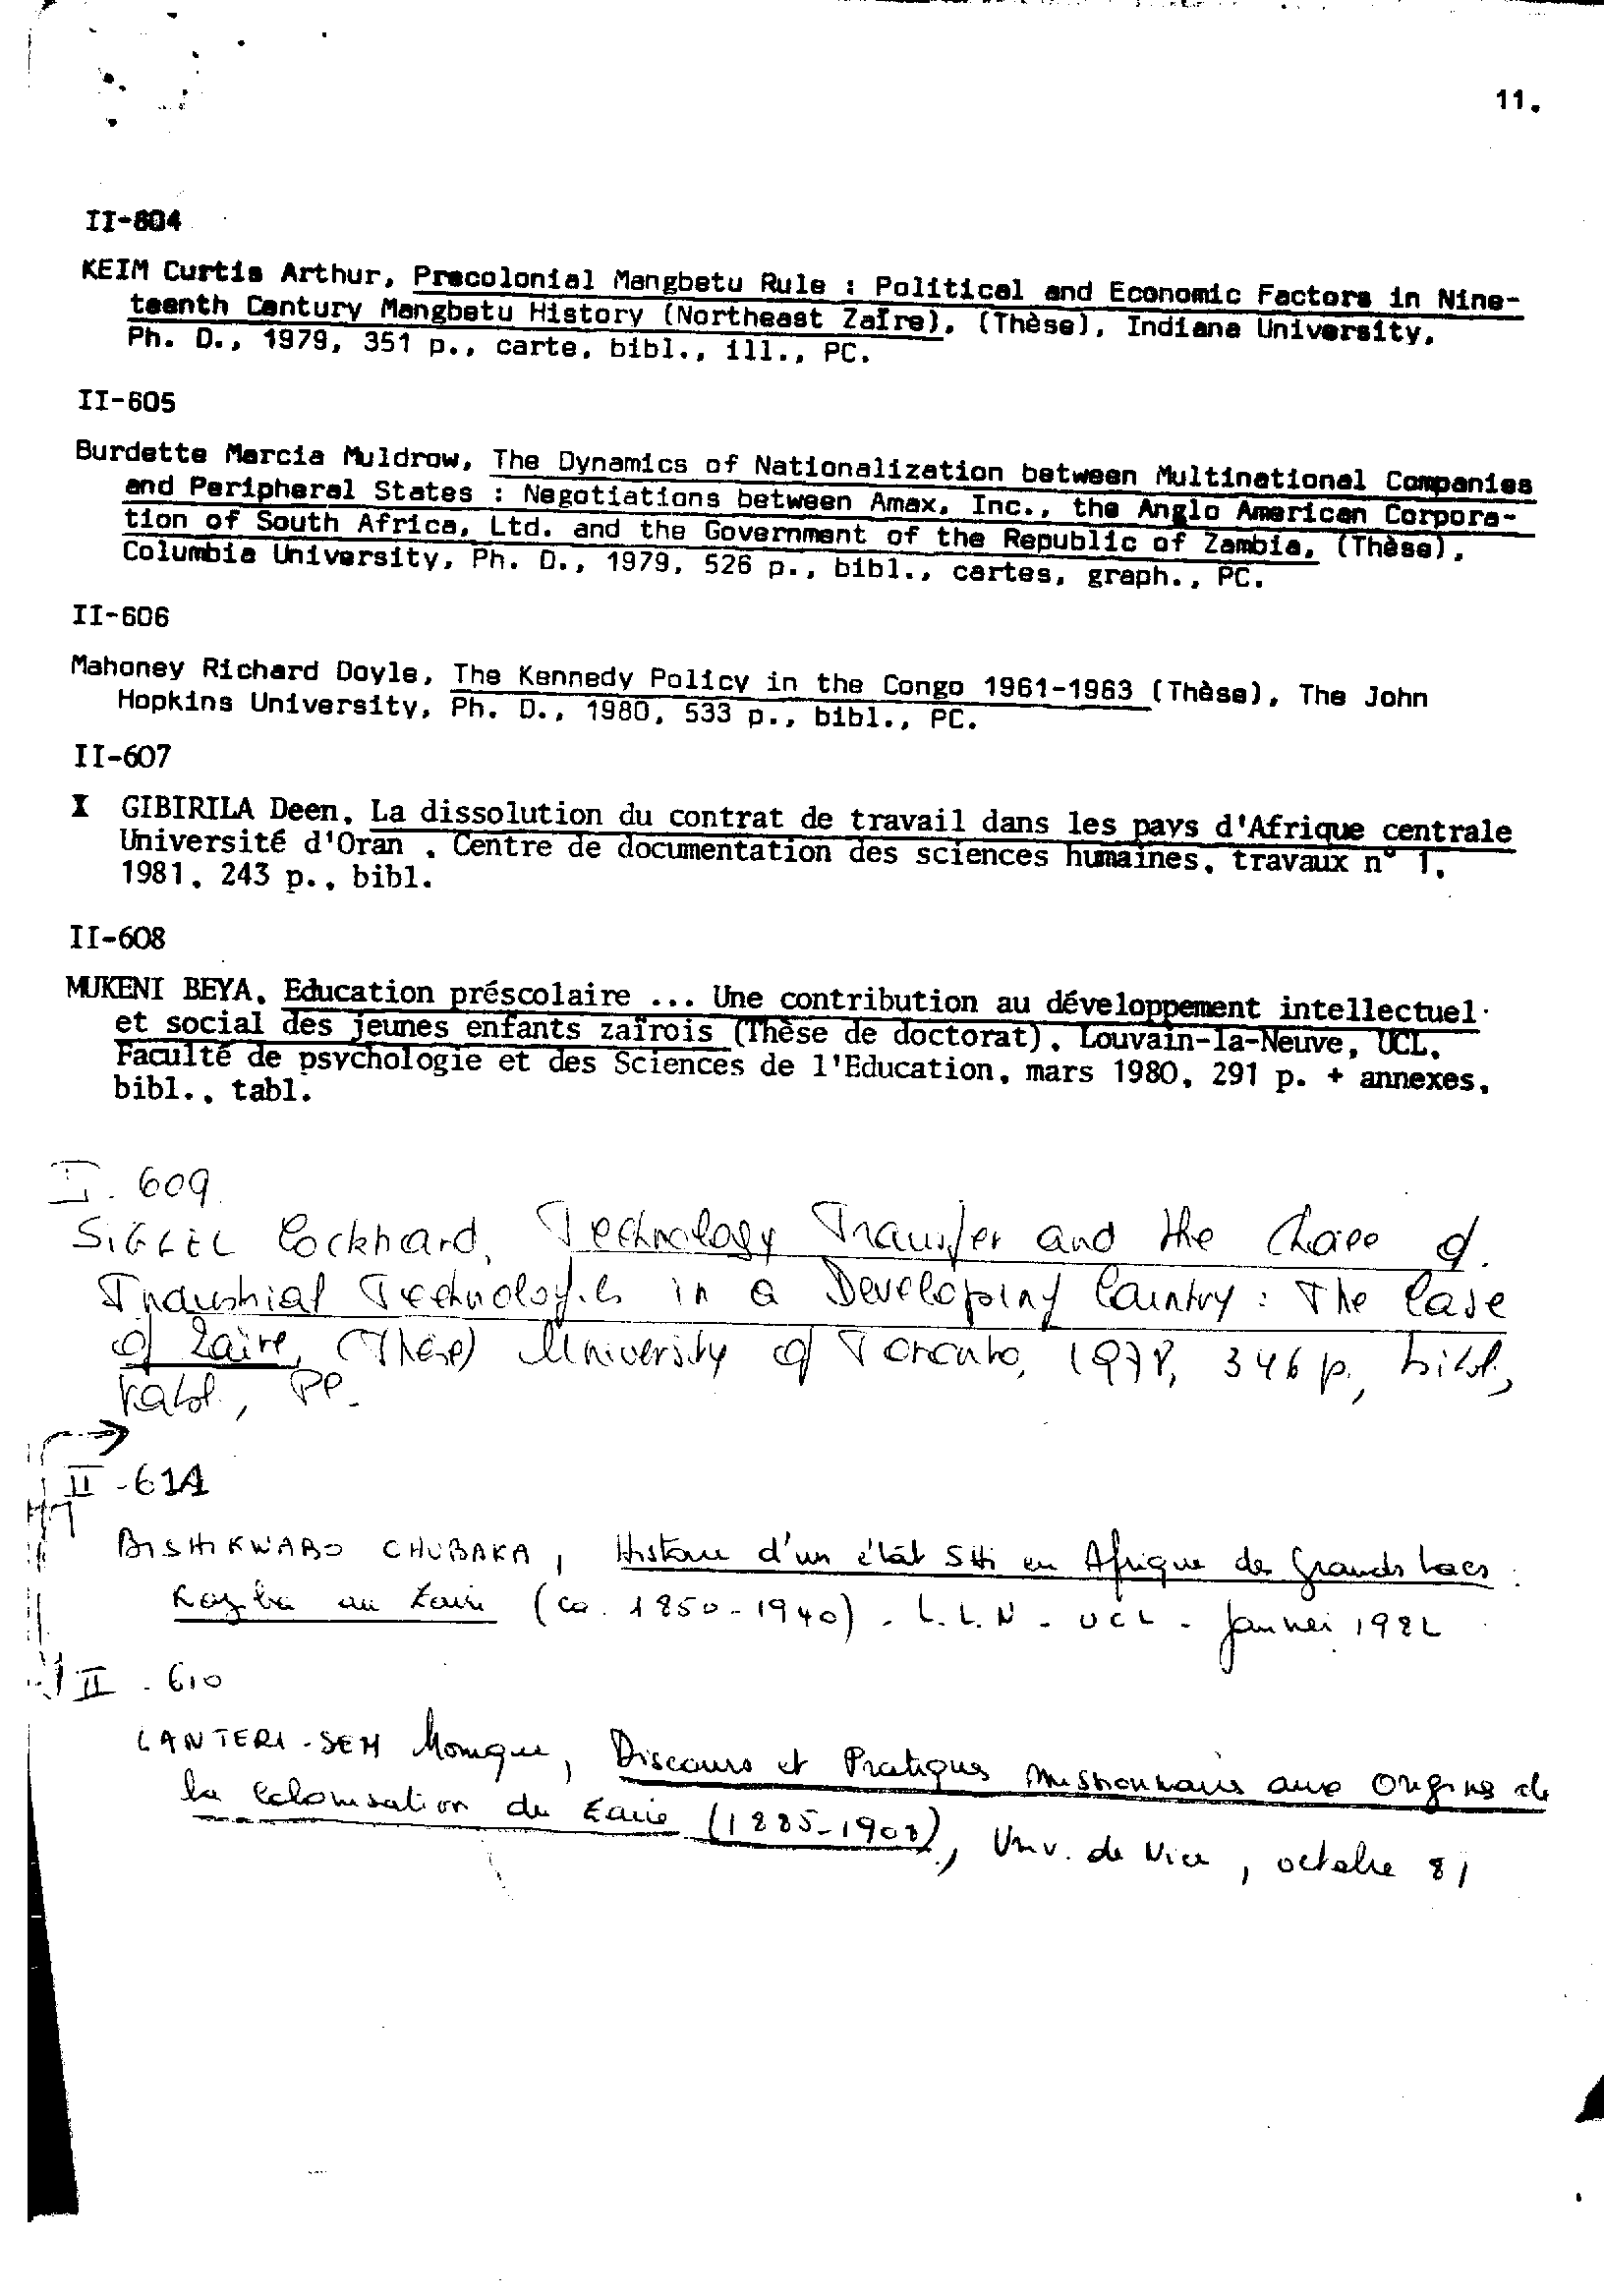 11.
II-604
KEIM Curtis Arthur, Precolonial Mangbetu Rule : Political and Economic Factors in Nine-
teenth Century Mangbetu History (Northeast Zaïre), (Thèse), Indiana University,
Ph. D., 1979, 351 p., carte, bibl., ill., PC.
II-605
Burdette Marcia Muldrow, The Dynamics of Nationalization between Multinational Companies
and Peripheral States : Negotiations between Amax, Inc., the Anglo American Corpora-
tion of South Africa, Ltd. and the Government of the Republic of Zambia, (Thèse),
Columbia University, Ph. D., 1979, 526 p., bibl., cartes, graph., PC.
II-606
Mahoney Richard Doyle, The Kennedy Policy in the Congo 1961-1963 (Thèse), The John
Hopkins University, Ph. D., 1980, 533 p., bibl., PC.
II-607
I GIBIRILA Deen, La dissolution du contrat de travail dans les pays d'Afrique centrale
Université d'Oran , Centre de documentation des sciences humaines, travaux n° 1,
1981, 243 p., bibl.
II-608
MUKENI BEYA, Education préscolaire ... Une contribution au développement intellectuel
et social des jeunes enfants zaïrois (Thèse de doctorat), Louvain-la-Neuve, UCL,
Faculté de psychologie et des Sciences de l'Education, mars 1980, 291 p. + annexes,
bibl., tabl.
I. 609
SIGGEL Eockhard, Technology Transfer and the Choice of
Industrial Technologies in a Developing Country : The Case
of Zaïre, (Thèse) University of Toronto, 1978, 346 p., bibl.,
tabl., PC.
II - 611
BISHIKWABO CHUBAKA, Histoire d'un état Shi en Afrique des Grands Lacs :
Kaziba au Zaïre (ca. 1850-1940) - L.L.N - UCL - Janvier 1982
II - 610
LANTERI-SEM Monique, Discours et Pratiques Missionnaires aux Origines de
la Colonisation du Zaïre (1885-1908), Univ. de Nice, octobre 81